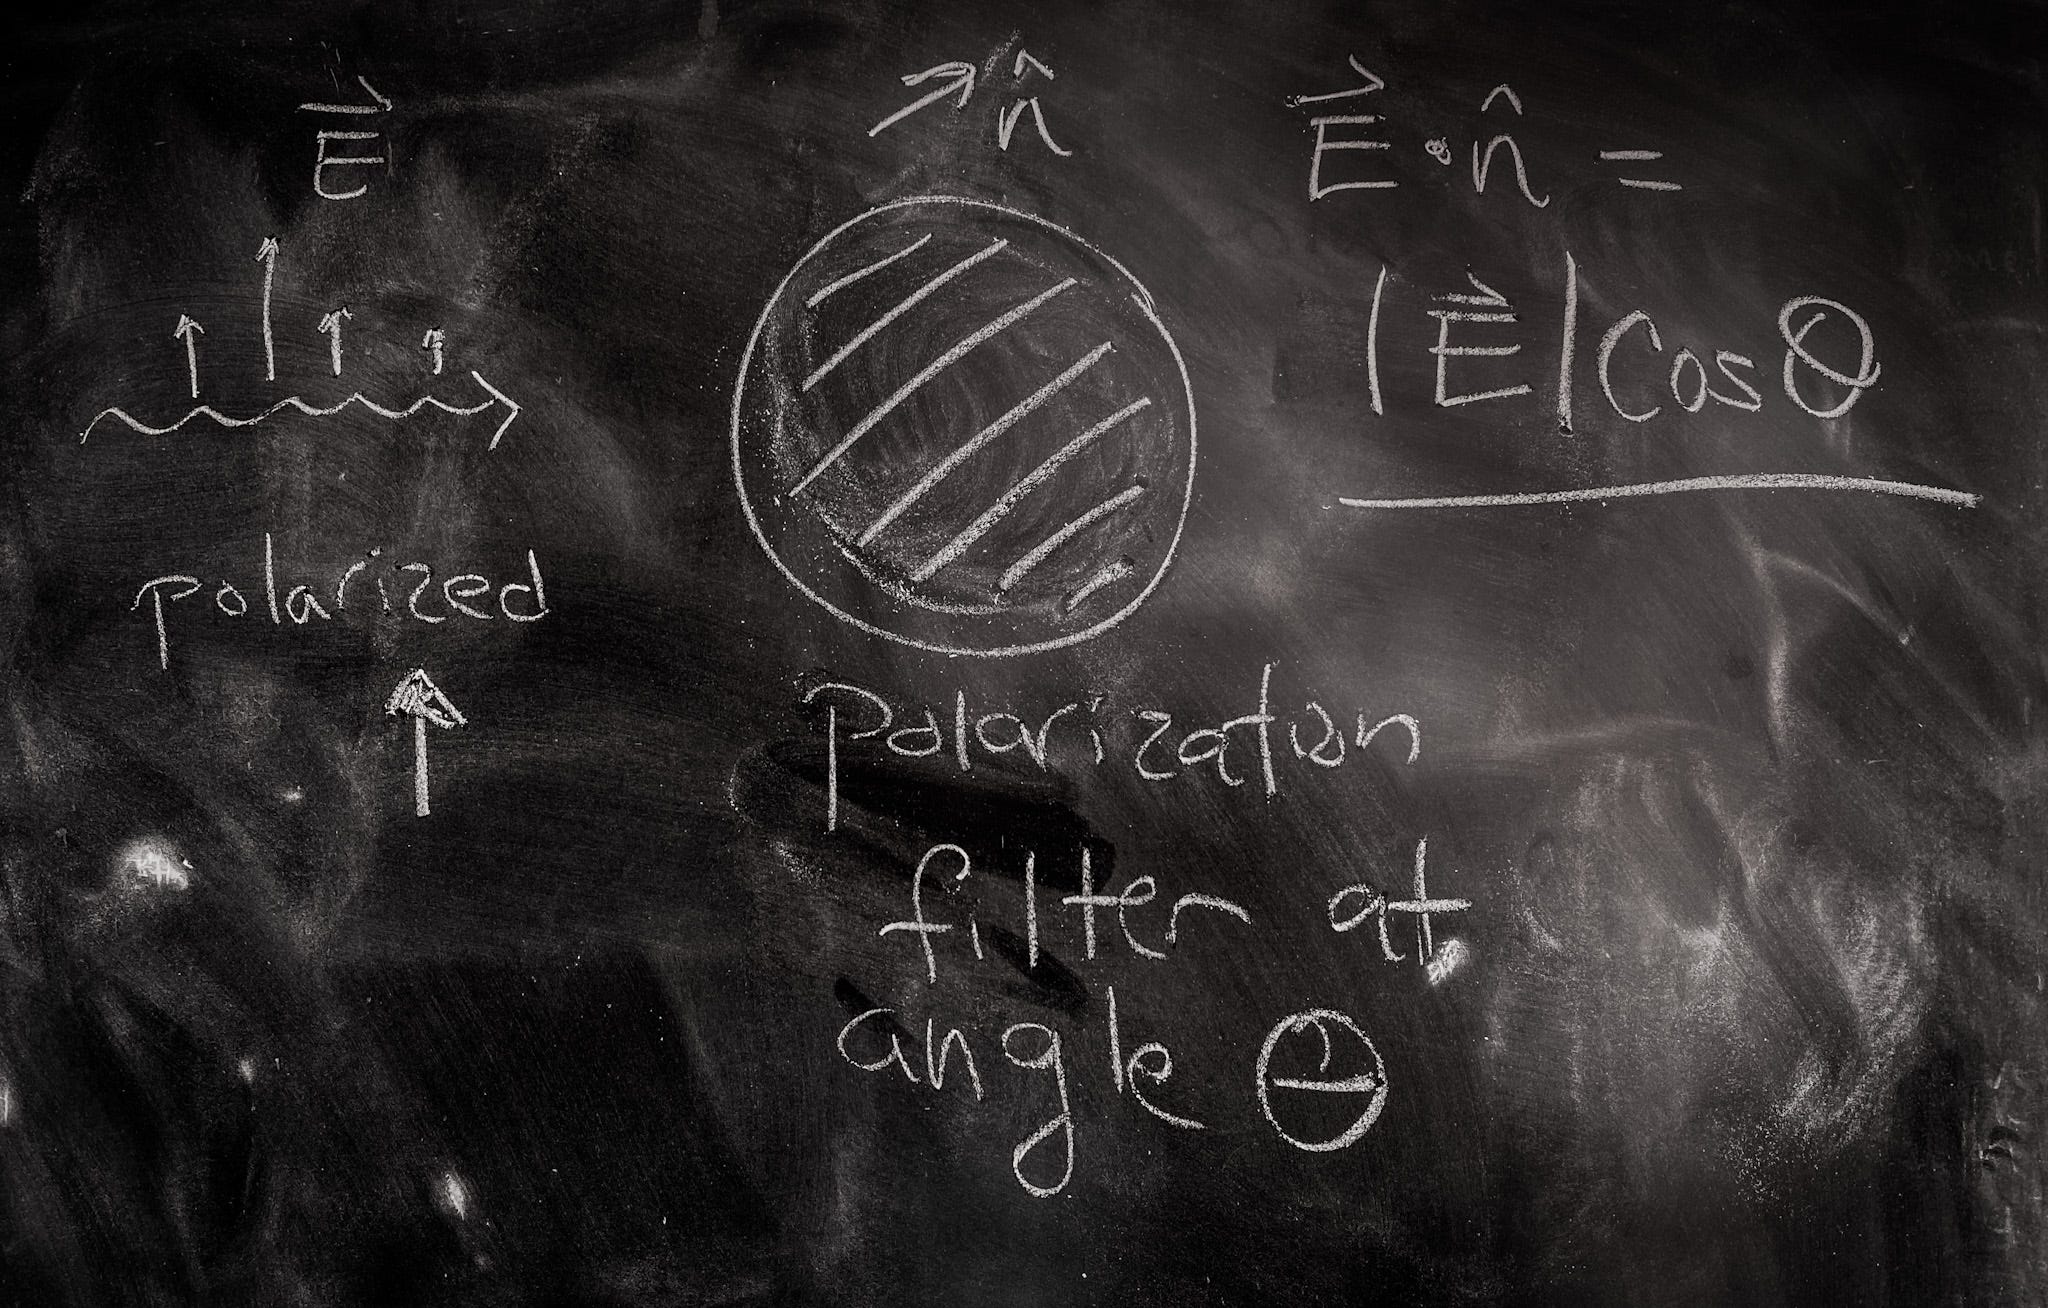 E⃗
polarized
n̂
polarization
filter at
angle θ
E⃗ · n̂ =
|E⃗| cos θ